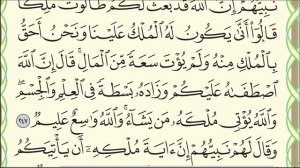 نَبِيُّهُمْ إِنَّ ٱللَّهَ قَدْ بَعَثَ لَكُمْ طَالُوتَ مَلِكًا
قَالُوٓا۟ أَنَّىٰ يَكُونُ لَهُ ٱلْمُلْكُ عَلَيْنَا وَنَحْنُ أَحَقُّ
بِٱلْمُلْكِ مِنْهُ وَلَمْ يُؤْتَ سَعَةً مِّنَ ٱلْمَالِ ۚ قَالَ إِنَّ ٱللَّهَ
ٱصْطَفَىٰهُ عَلَيْكُمْ وَزَادَهُۥ بَسْطَةً فِى ٱلْعِلْمِ وَٱلْجِسْمِ ۖ
وَٱللَّهُ يُؤْتِى مُلْكَهُۥ مَن يَشَآءُ ۚ وَٱللَّهُ وَٰسِعٌ عَلِيمٌ ٢٤٧
وَقَالَ لَهُمْ نَبِيُّهُمْ إِنَّ ءَايَةَ مُلْكِهِۦٓ أَن يَأْتِيَكُمُ